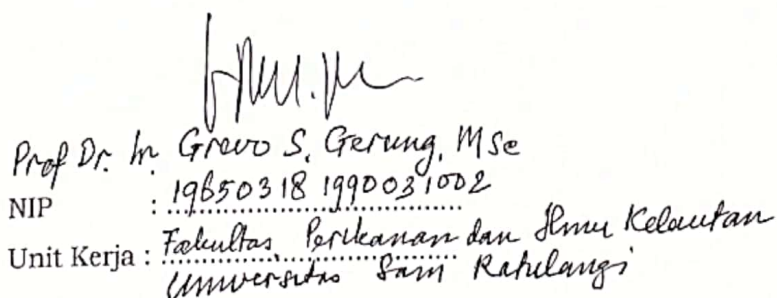 Prof Dr. Ir. Grevo S. Gerung, MSc
NIP : 19650318 1990031002
Unit Kerja : Fakultas Perikanan dan Ilmu Kelautan
Universitas Sam Ratulangi